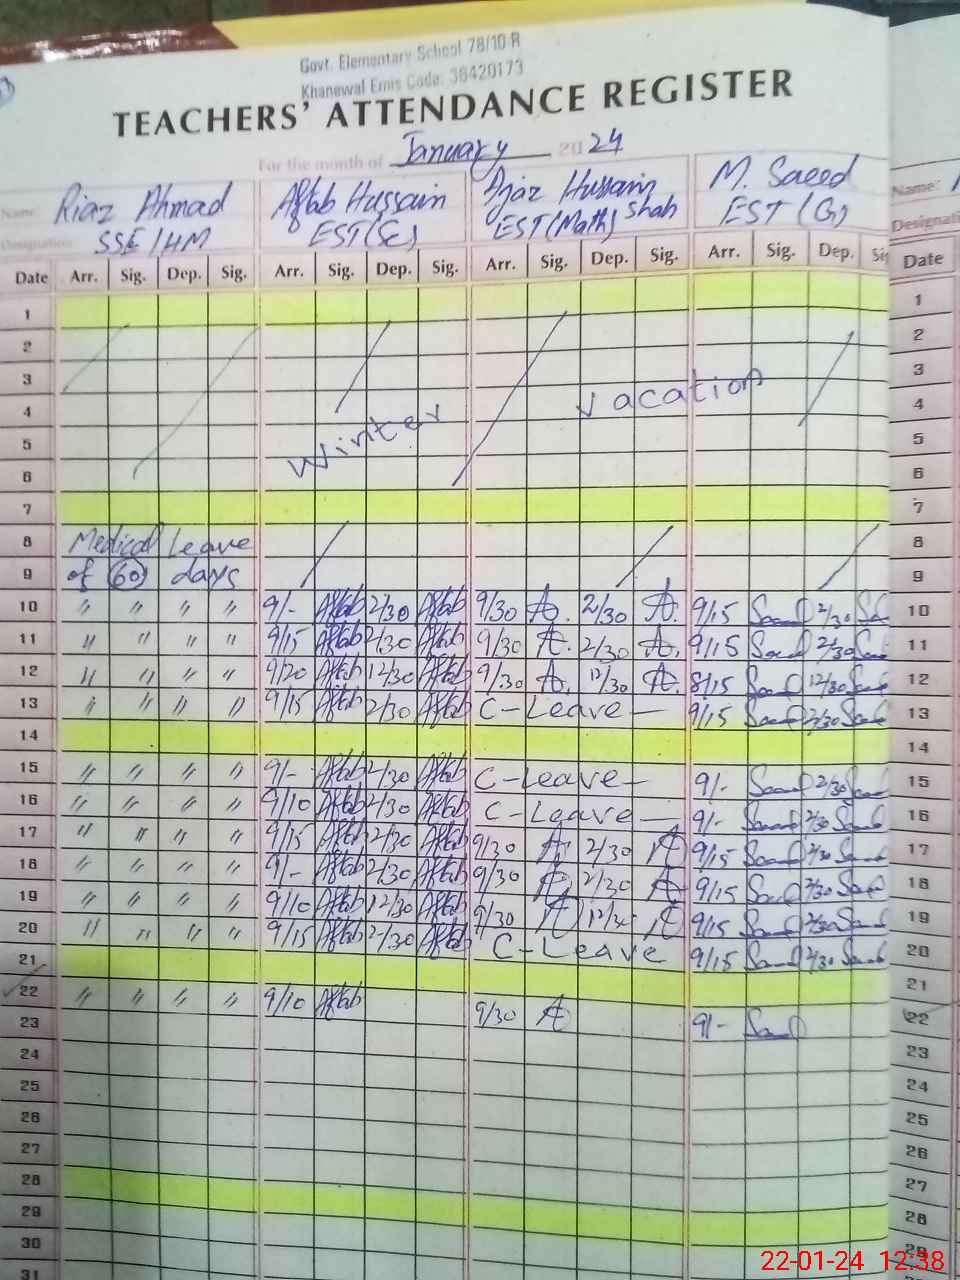 Govt. Elementary School 78/10-R
Khanewal Emis Code: 36420173
TEACHERS' ATTENDANCE REGISTER
For the month of January 2024
Name: Riaz Ahmad Aftab Hussain Ajaz Hussain Shah M. Saeed Name:
Designation: SSE/HM EST(Sc) EST(Math) EST(G) Designati
Date Arr. Sig. Dep. Sig. Arr. Sig. Dep. Sig. Arr. Sig. Dep. Sig. Arr. Sig. Dep. Sig Date
1 1
2 2
3 vacation 3
4 winter 4
5 5
6 6
7 7
8 Medical Leave 8
9 of 60 days 9
10 " " " " 9/- Aftab 2/30 Aftab 9/30 A. 2/30 A. 9/15 Saeed 2/30 10
11 " " " " 9/15 Aftab 2/30 Aftab 9/30 A. 2/30 A. 9/15 Saeed 2/30 11
12 " " " " 9/20 Aftab 12/30 Aftab 9/30 A. 12/30 A. 8/15 Saeed 12/30 12
13 " " " " 9/15 Aftab 2/30 Aftab C-Leave- 9/15 Saeed 2/30 13
14 14
15 " " " " 9/- Aftab 2/30 Aftab C-Leave- 9/- Saeed 2/30 15
16 " " " " 9/10 Aftab 2/30 Aftab C-Leave- 9/- Saeed 2/30 16
17 " " " " 9/15 Aftab 2/30 Aftab 9/30 A 2/30 A 9/15 Saeed 2/30 17
18 " " " " 9/- Aftab 2/30 Aftab 9/30 A 2/30 A 9/15 Saeed 2/30 18
19 " " " " 9/10 Aftab 12/30 Aftab 9/30 A 12/30 A 9/15 Saeed 2/30 19
20 " " " " 9/15 Aftab 2/30 Aftab C-Leave 9/15 Saeed 2/30 20
21 21
22 " " " " 9/10 Aftab 9/30 A 9/- Saeed 22
23 23
24 24
25 25
26 26
27 27
28 28
29 29
30
31
22-01-24 12:38